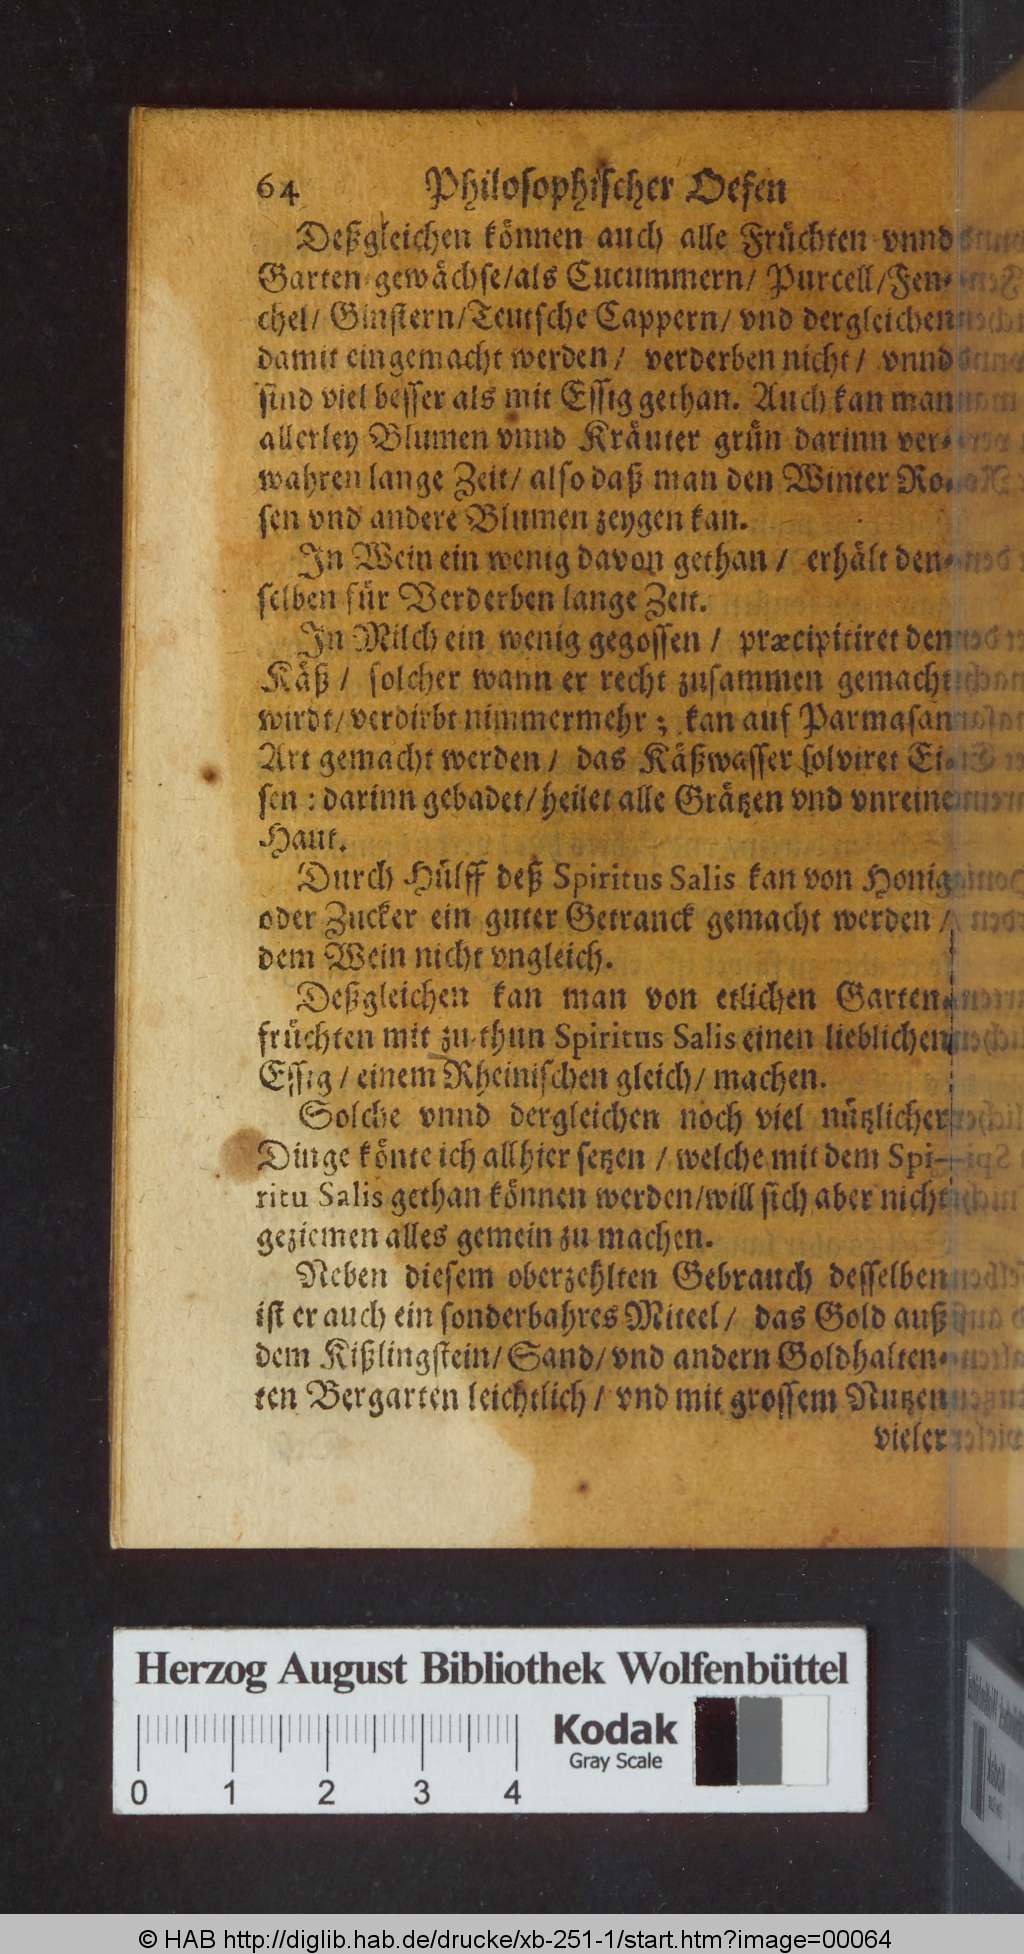 64 Philosophischer Oefen
Deßgleichen können auch alle Früchten vnnd
Garten gewächse/als Cucummern/ Purcell/Fen-
chel/ Ginstern/Teutsche Cappern/ vnd dergleichen
damit eingemacht werden/ verderben nicht/ vnnd
sind viel besser als mit Essig gethan. Auch kan man
allerley Blumen vnnd Kräuter grün darinn ver-
wahren lange Zeit/ also daß man den Winter Ro-
sen vnd andere Blumen zeygen kan.
In Wein ein wenig davon gethan/ erhält den-
selben für Verderben lange Zeit.
In Milch ein wenig gegossen/ præcipitiret den
Käß/ solcher wann er recht zusammen gemacht
wirdt/verdirbt nimmermehr; kan auf Parmasan
Art gemacht werden/ das Käßwasser solviret Ei-
sen: darinn gebadet/heilet alle Grätzen vnd vnreine
Haut.
Durch Hülff deß Spiritus Salis kan von Honig
oder Zucker ein guter Getranck gemacht werden/
dem Wein nicht vngleich.
Deßgleichen kan man von etlichen Garten-
früchten mit zu thun Spiritus Salis einen lieblichen
Essig/ einem Rheinischen gleich/ machen.
Solche vnnd dergleichen noch viel nützlicher
Dinge könte ich allhier setzen/ welche mit dem Spi-
ritu Salis gethan können werden/will sich aber nicht
geziemen alles gemein zu machen.
Neben diesem oberzehlten Gebrauch desselben
ist er auch ein sonderbahres Miteel/ das Gold auß
dem Kißlingstein/Sand/vnd andern Goldhalten-
ten Bergarten leichtlich/ vnd mit grossem Nutzen
vieler
Herzog August Bibliothek Wolfenbüttel
Kodak
Gray Scale
0 1 2 3 4
© HAB http://diglib.hab.de/drucke/xb-251-1/start.htm?image=00064